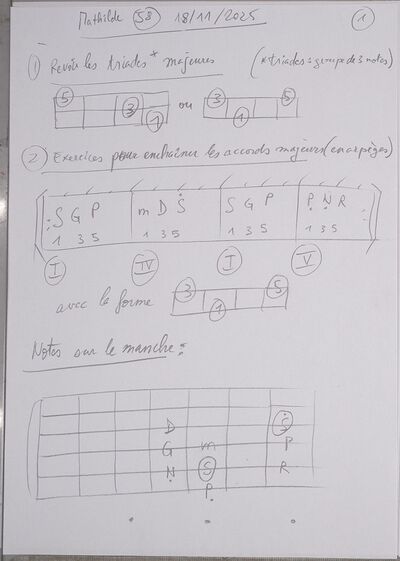 Mathilde 58 18/11/2025 1
① Revoir les triades* majeures (*triades = groupe de 3 notes)
5 3 1 ou 3 1 5
② Exercices pour enchaîner les accords majeurs (en arpèges)
S G P m D Ṡ S G P P̣ Ṇ R
1 3 5 1 3 5 1 3 5 1 3 5
I IV I V
avec la forme 3 1 5
Notes sur le manche :
D Ṡ
G m P
Ṇ S R
P̣